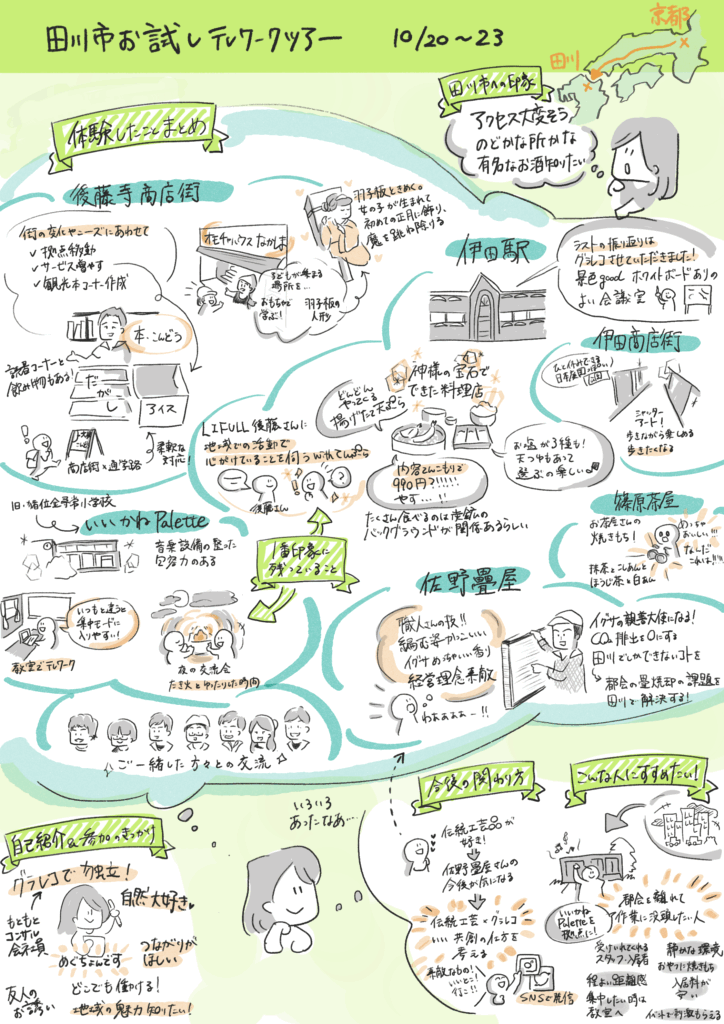 田川市お試しテレワークツアー 10/20〜23
京都
田川
田川市への印象
アクセス大変そう
のどかな所かな
有名なお酒知りたい
体験したことまとめ
後藤寺商店街
街の変化やニーズにあわせて
✓ 拠点移動
✓ サービス増やす
✓ 観光本コーナー作成
本・こんどう
読書コーナーと
飲み物もある!
だがし
アイス
商店街×通学路
柔軟な
対応!
オモチャハウス なかしま
子どもが集まる
場所を…
おもちゃで
学ぶ!
羽子板の
人形
羽子板ときめく。
女の子が生まれて
初めての正月に飾り、
魔を跳ね除ける
伊田駅
ラストの振り返りは
グラレコさせていただきました!
景色good ホワイトボードありの
よい会議室
伊田商店街
ひと休みできる
日本庭園(っぽい)
シャッター
アート!
歩きながら楽しめる
歩きたくなる
神様の宝石で
できた料理店
どんどん
やってくる
揚げたて天ぷら
内容てんこもりで
990円?!!!!!
やす…!!
お塩が3種も!
天つゆもあって
選ぶの楽しい
たくさん食べるのは炭鉱の
バックグラウンドが関係あるらしい
LIFULL 後藤さんに
地域での活動で
心がけていることを伺う withてんぷら
後藤さん
旧・猪位金早君小学校
いいかねPalette
音楽設備の整った
宿泊力のある
いつもと違うと
集中モードに
入りやすい!
教室でテレワーク
夜の交流会
たき火とゆったりした時間
1番印象に
残っていること
篠原茶屋
お茶屋さんの
焼きもち!
抹茶とこしあんと
ほうじ茶と白あん
めっちゃ
おいしい!!!
なんだ
これは!!!
佐野畳屋
職人さんの技!!
編む姿かっこいい
イグサめっちゃいい香り
経営理念素敵
わぁぁぁぁー!!
イグサの親善大使になる!
CO₂排出を0にする
田川でしかできないコトを
都会の畳焼却の課題を
田川で解決する!
ご一緒した方々との交流
いろいろ
あったなあ…
自己紹介&参加のきっかけ
グラレコで独立!
もともと
コンサル
会社員
自然大好き
めぐちょんです
つながりが
ほしい
友人の
お誘い
どこでも働ける!
地域の魅力知りたい!
今後の関わり方
伝統工芸品が
好き!
佐野畳屋さんの
今後が気になる
伝統工芸×グラレコ
いい共創の仕方を
考える
素敵なもの!
いいとこ!
行こ!!
SNSで発信
こんな人にすすめたい!
いいかね
Paletteを
拠点に!
都会を離れて
作業に没頭したい人
受けいれてくれる
スタッフ・入居者
程よい距離感
集中したい時は
教室へ
静かな環境
おやつに焼きもち
入居料が
安い
イベントで刺激もらえる